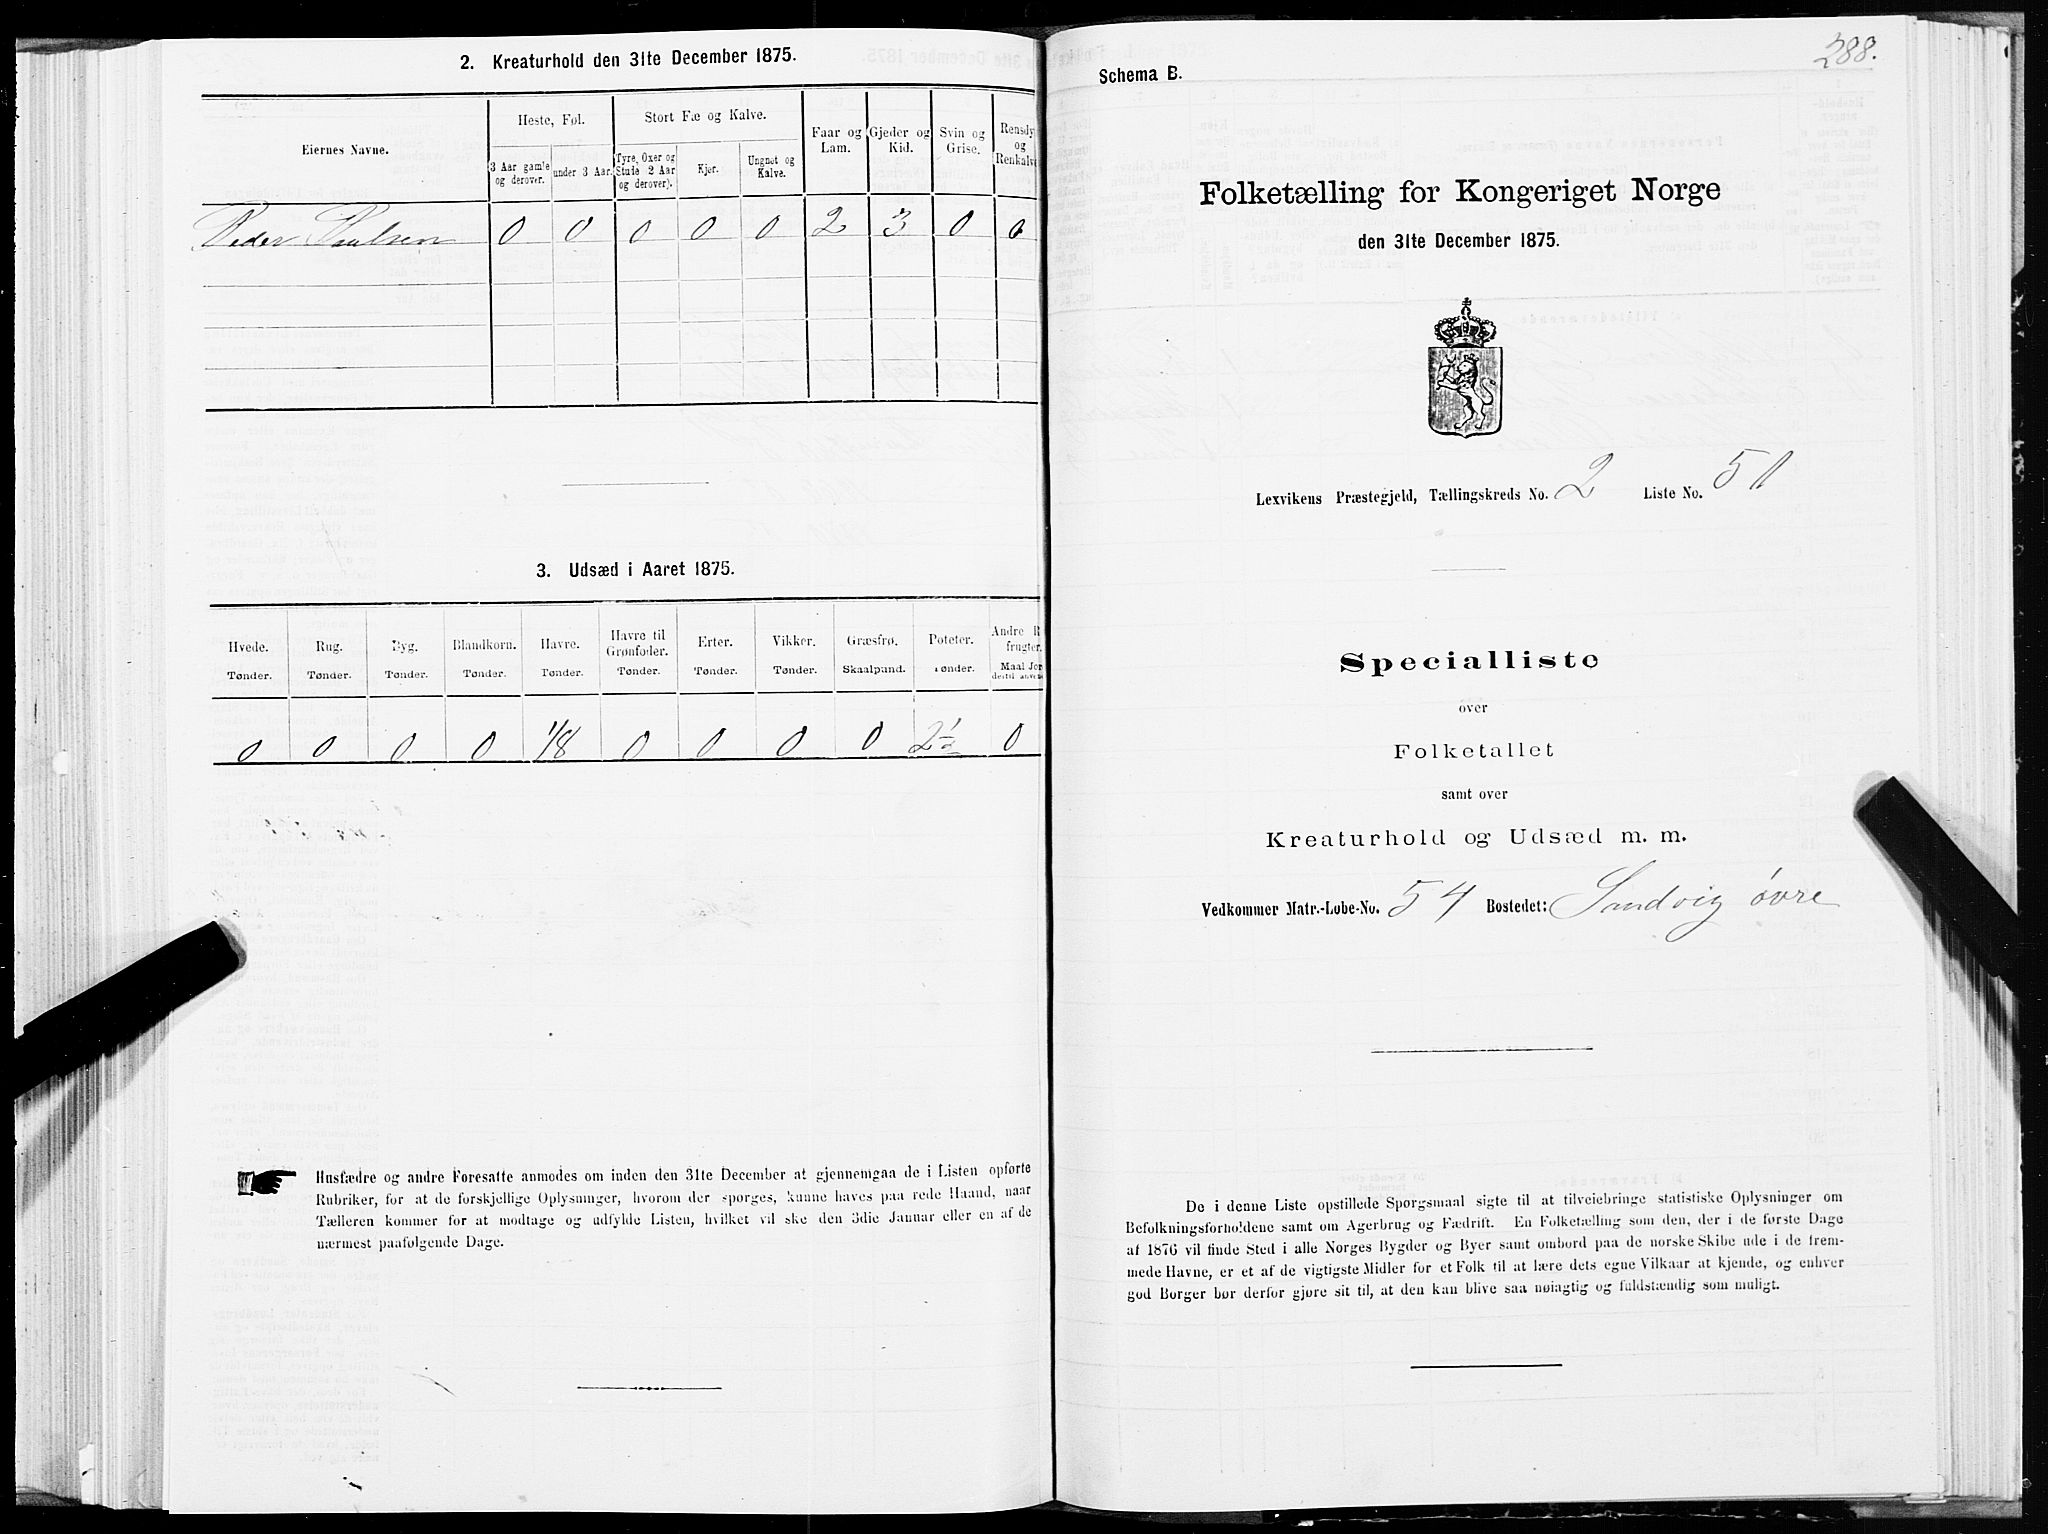 2. Kreaturhold den 31te December 1875.
Eiernes Navne.
Heste, Føl.
Stort Fæ og Kalve.
Faar og Lam.
Gjeder og Kid.
Svin og Grise.
Rensdy og Renkalve
3 Aar gamle og derover.
under 3 Aar.
Tyre, Oxer og Stude 2 Aar og derover).
Kjør.
Ungnøt og Kalve.
Peder Paulsen 0 0 0 0 0 2 3 0 0
3. Udsæd i Aaret 1875.
Hvede. Rug. Byg. Blandkorn. Havre. Havre til Grønfoder. Erter. Vikker. Græsfrø. Poteter. Andre R frugter.
Tønder. Tønder. Tønder. Tønder. Tønder. Tønder. Tønder. Tønder. Skaalpund. Tønder. Maal Jor dertil anven
0 0 0 0 1/8 0 0 0 0 2 1/2 0
Husfædre og andre Foresatte anmodes om inden den 31te December at gjennemgaa de i Listen opførte
Rubriker, for at de forskjellige Oplysninger, hvorom der spørges, kunne haves paa rede Haand, naar
Tælleren kommer for at modtage og udfylde Listen, hvilket vil ske den 3die Januar eller en af de
nærmest paafølgende Dage.
288.
Schema B.
Folketælling for Kongeriget Norge
den 31te December 1875.
Lexvikens Præstegjeld, Tællingskreds No. 2 Liste No. 51
Specialliste
over
Folketallet
samt over
Kreaturhold og Udsæd m. m.
Vedkommer Matr.-Løbe-No. 54 Bostedet: Sandvig øvre
De i denne Liste opstillede Spørgsmaal sigte til at tilveiebringe statistiske Oplysninger om
Befolkningsforholdene samt om Agerbrug og Fædrift. En Folketælling som den, der i de første Dage
af 1876 vil finde Sted i alle Norges Bygder og Byer samt ombord paa de norske Skibe ude i de frem-
mede Havne, er et af de vigtigste Midler for et Folk til at lære dets egne Vilkaar at kjende, og enhver
god Borger bør derfor gjøre sit til, at den kan blive saa nøiagtig og fuldstændig som muligt.